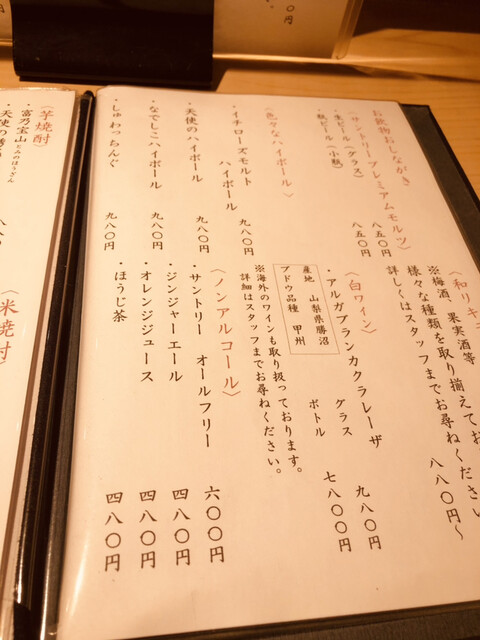 お飲物おしながき
〈サントリープレミアムモルツ〉
・生ビール(グラス) 八五〇円
・瓶ビール(小瓶) 八五〇円
〈色々なハイボール〉
・イチローズモルト
ハイボール 九八〇円
・天使のハイボール 九八〇円
・なでしこハイボール 九八〇円
・しゅわっちんぐ 九八〇円
〈和リキュ
※梅酒、果実酒等
様々な種類を取り揃えてお
詳しくはスタッフまでお尋ねください
八八〇円~
〈白ワイン〉
・アルガブランカクラレーザ
グラス 九八〇円
ボトル 七八〇〇円
産地 山梨県勝沼
ブドウ品種 甲州
※海外のワインも取り扱っております。
詳細はスタッフまでお尋ねください。
〈ノンアルコール〉
・サントリー オールフリー 六〇〇円
・ジンジャーエール 四八〇円
・オレンジジュース 四八〇円
・ほうじ茶 四八〇円
〈芋焼酎〉
・富乃宝山 とみのほうざん
・天使の誘
〈米焼酎〉
〇円